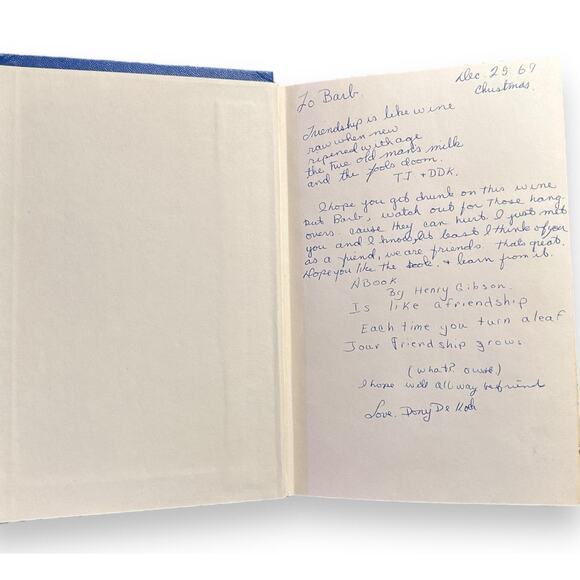 Dec. 25 69
Christmas.
To Barb.
Friendship is like wine
raw when new
ripened with age
the true old man's milk
and the fools doom.
TJ + DDK.
I hope you got drunk on this wine
but Barb, watch out for those hang-
overs. cause they can hurt. I just met
you and I know, at least I think of you
as a friend, we are friends. thats great.
Hope you like the book. & learn from it.
A BOOK
By Henry Gibson.
Is like a friendship
Each time you turn a leaf
Your friendship grows.
(what?
I hope will allway be friend
Love,